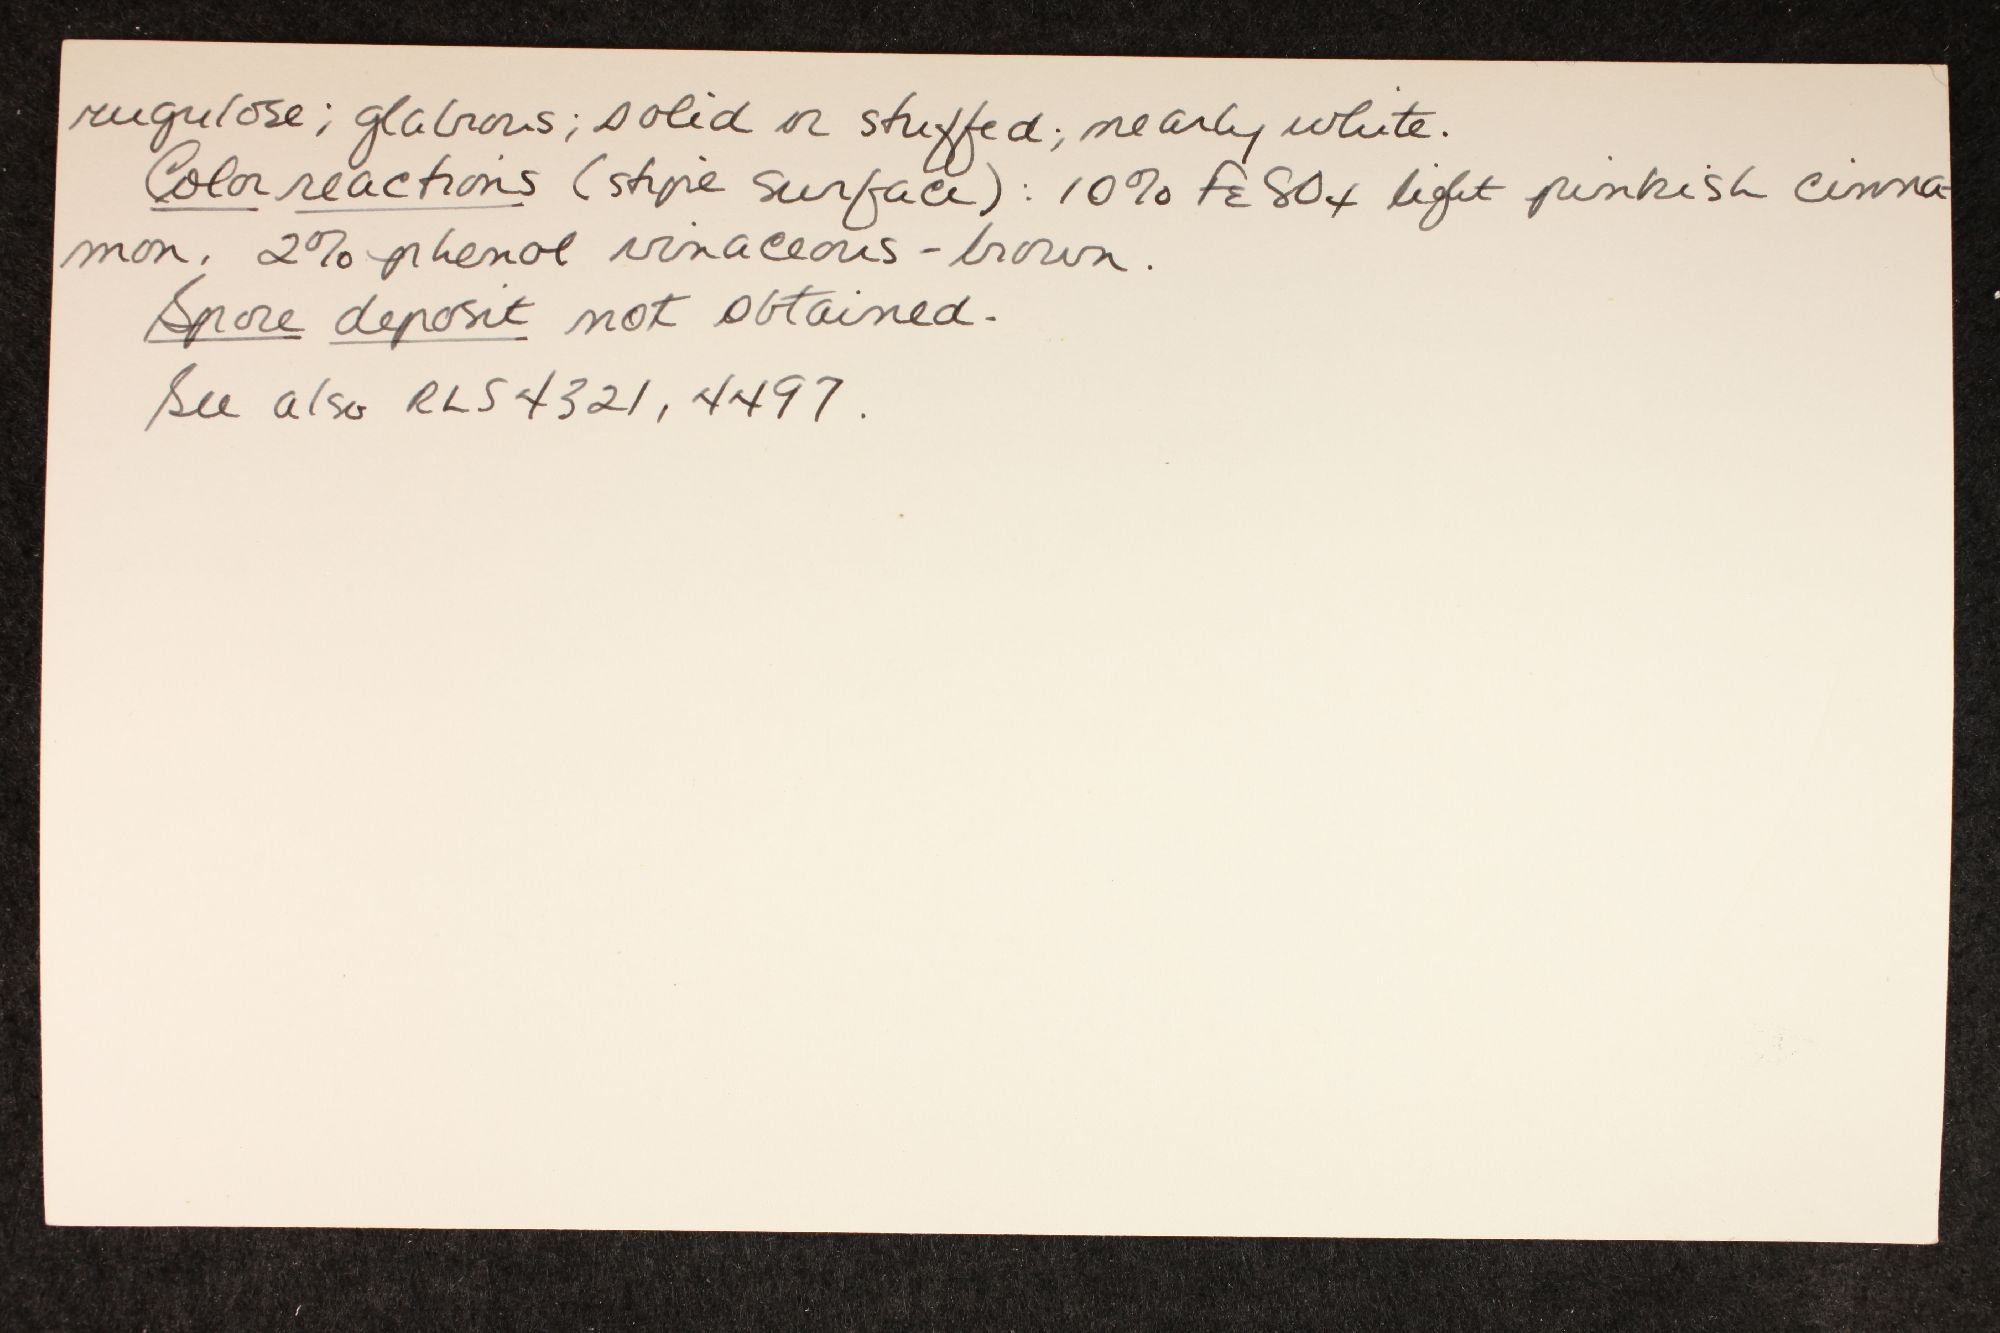 rugulose; glabrous; solid or stuffed; nearly white.
Color reactions (stipe surface): 10% FeSO4 light pinkish cinna-
mon. 2% phenol vinaceous-brown.
Spore deposit not obtained.
See also RLS 4321, 4497.